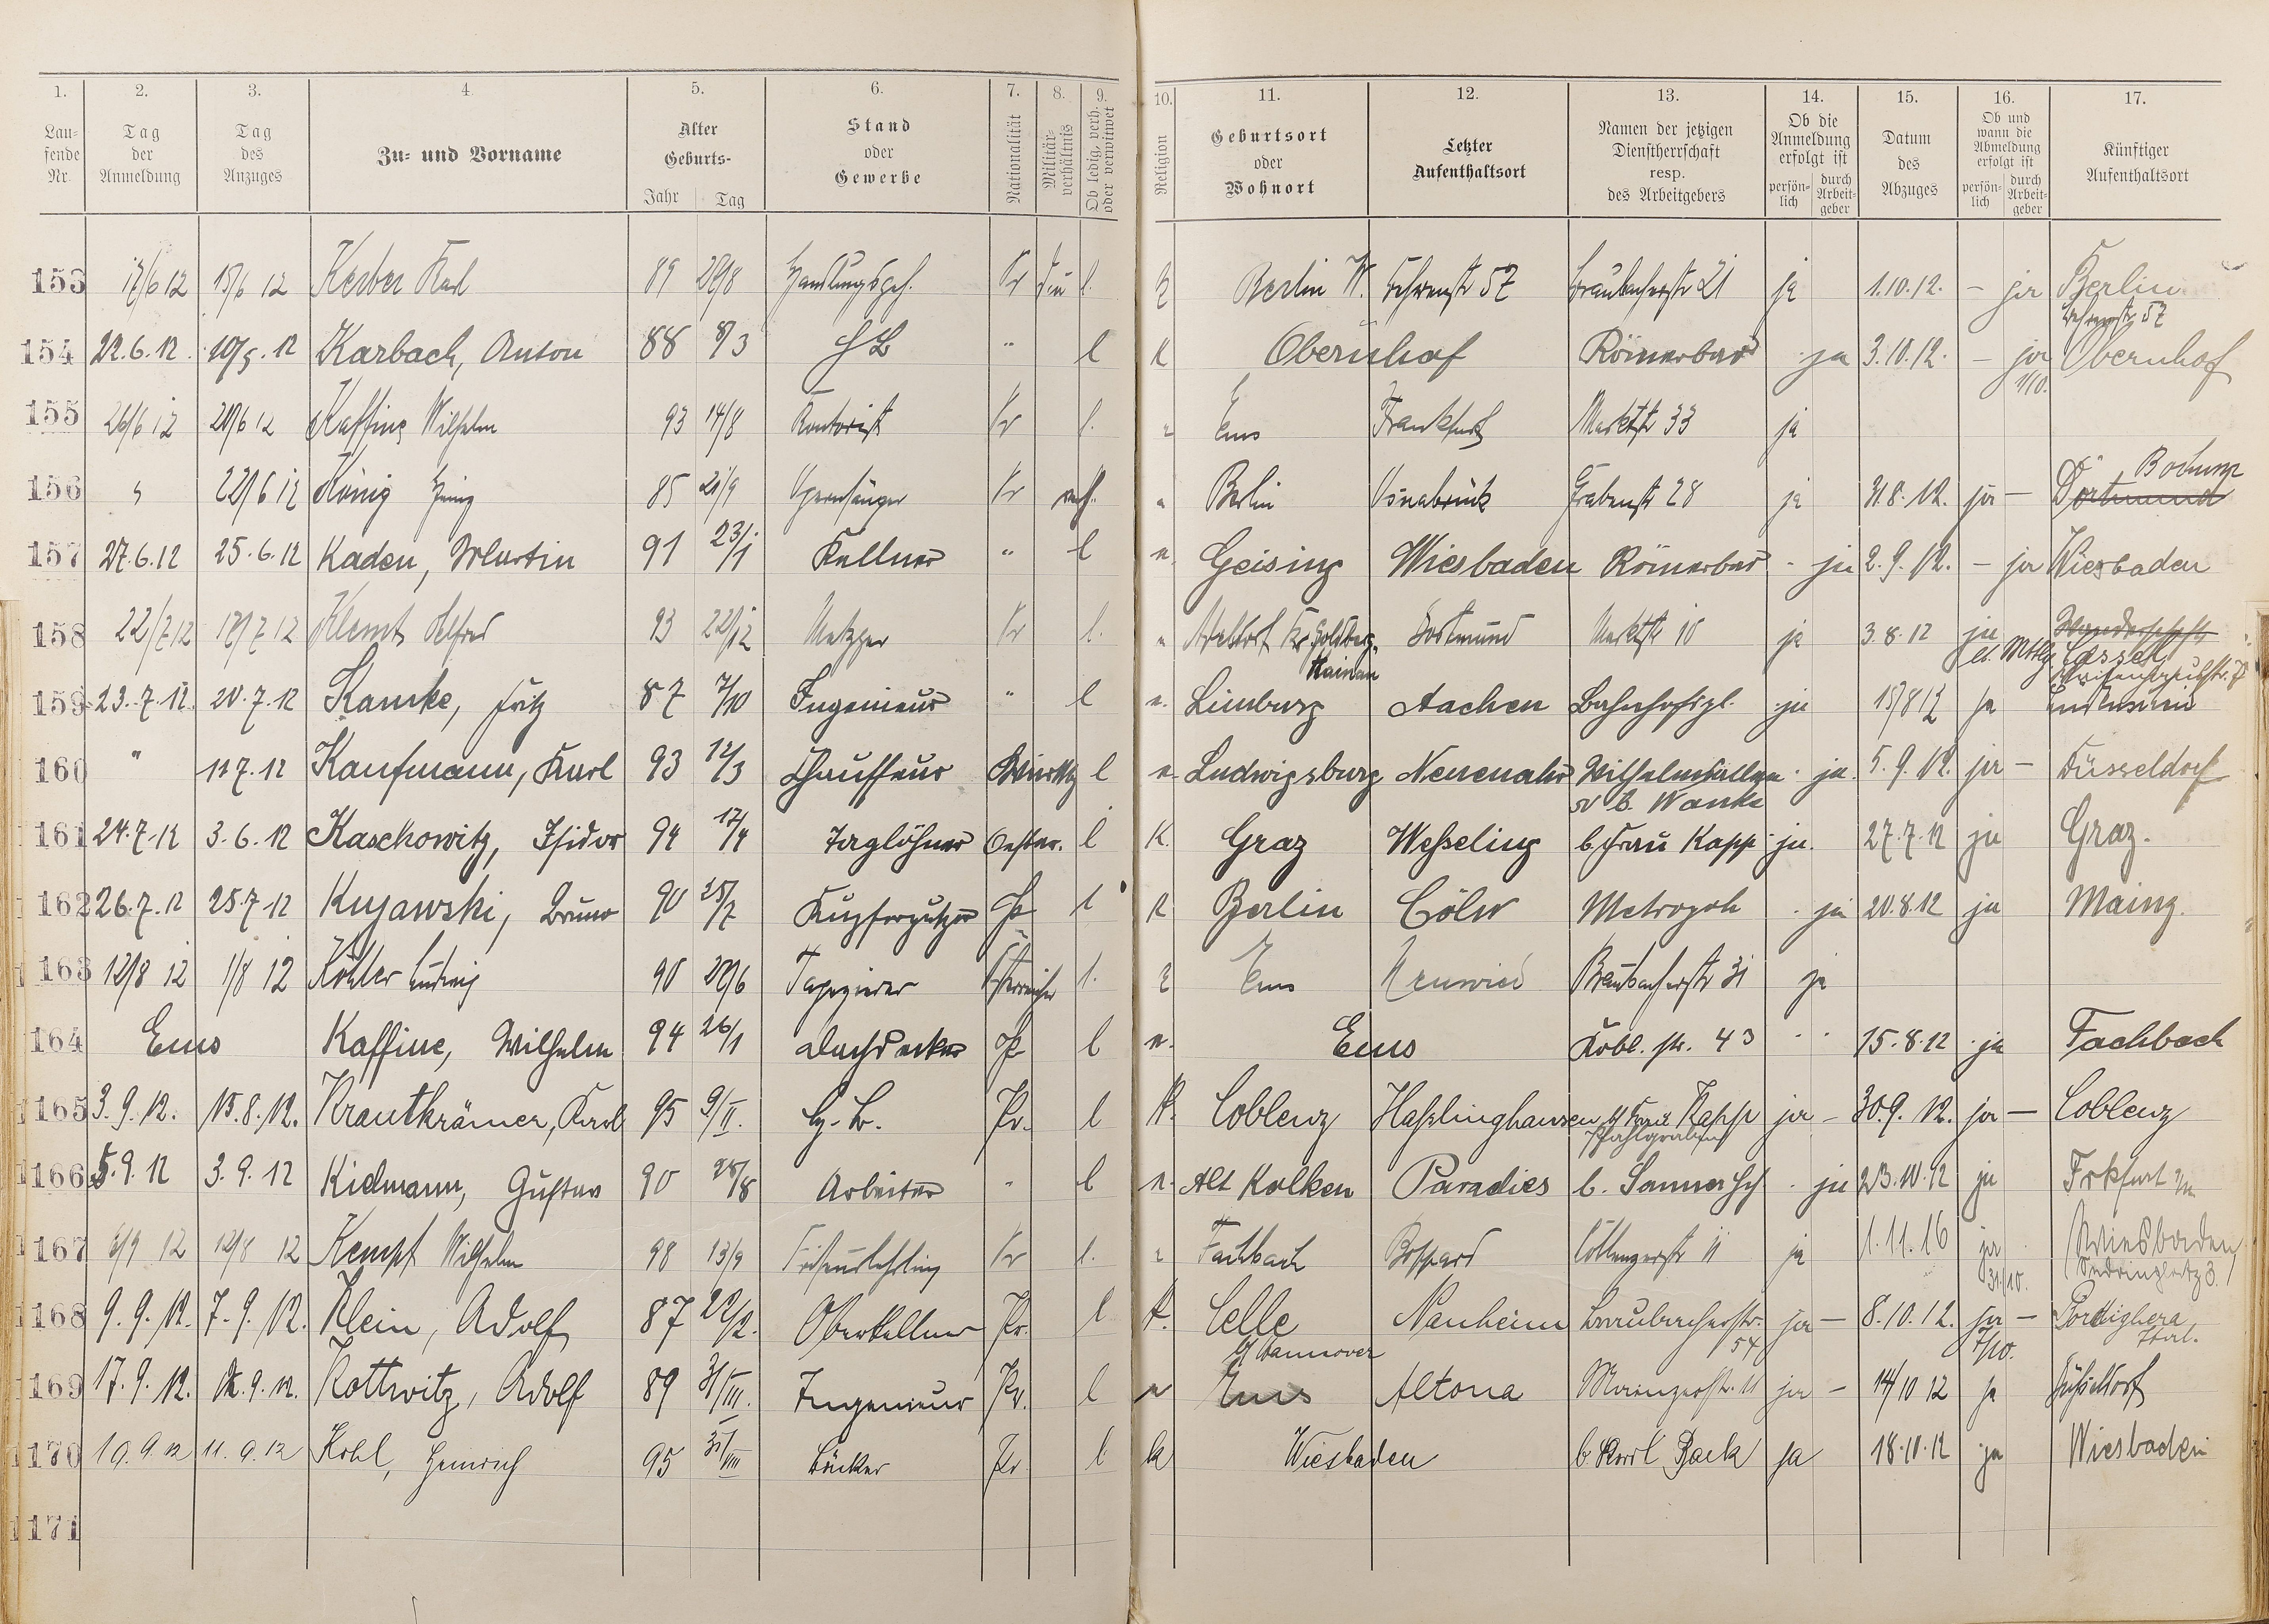 1. 2. 3. 4. 5. 6. 7. 8. 9. 10. 11. 12. 13. 14. 15. 16. 17.
Lau-
fende
Nr.
Tag
der
Anmeldung
Tag
des
Anzuges
Zu- und Vorname
Alter
Geburts-
Jahr Tag
Stand
oder
Gewerbe
Nationalität
Militär-
verhältnis
Ob ledig, verh.
oder verwitwet
Religion
Geburtsort
oder
Wohnort
Letzter
Aufenthaltsort
Namen der jetzigen
Dienstherrschaft
resp.
des Arbeitgebers
Ob die
Anmeldung
erfolgt ist
persön-
lich
durch
Arbeit-
geber
Datum
des
Abzuges
Ob und
wann die
Abmeldung
erfolgt ist
persön-
lich
durch
Arbeit-
geber
Künftiger
Aufenthaltsort
153 17/6 12 15/6 12 Kerber Karl 89 29/8 Handlungsgeh. Pr l. Berlin W. Behrenstr 57 Braubacherstr 21 ja 1.10.12. - ja Berlin
Behrenstr 57
154 22.6.12. 10/5.12 Karbach, Anton 88 8/3 HB " l K Obernhof Römerbad ja 3.10.12. - ja Obernhof
1/10.
155 26/6 12 20/6 12 Kaffine Wilhelm 93 14/8 Kontorist Pr l. Ems Frankfurt Marktstr 33 ja
156 " 22/6 12 König 85 21/9 Opernsänger Pr verh. Berlin Osnabrück Grabenstr 28 ja 31.8.12. ja - Dortmund Bochum
157 27.6.12 25.6.12 Kaden, Martin 91 23/1 Kellner " l e. Geising Wiesbaden Römerbad - ja 2.9.12. - ja Wiesbaden
158 22/7 12 18/7 12 Klemt Alfred 93 22/12 Metzger Pr l. Kr Goldberg- Dortmund Marktstr 10 ja 3.8.12 ja Wanderschaft
Hainau lt. Mttlg. Cassel
159 23.7.12 20.7.12 Kamke, Fritz 87 7/10 Ingenieur " l e. Limburg Aachen Bahnhofspl. ja 15/8 12 ja
160 " 12 7.12 Kaufmann, Karl 93 12/3 Chauffeur Württbg l e. Ludwigsburg Neuenahr Wilhelmsallee - ja. 5.9.12. ja - Düsseldorf
b. Wanke
161 24.7.12 3.6.12 Kaschowitz, Isidor 94 17/4 Taglöhner Oester. l K. Graz Weßeling b. Frau Kapp ja. 27.7.12 ja Graz.
162 26.7.12 25.7.12 Kujawski, Bruno 90 25/7 Kupferputzer Pr l K Berlin Cöln Metropole - ja 20.8.12 ja Mainz.
163 12/8 12 1/8 12 Köhler Ludwig 90 29/6 Tapezierer Österreicher l. Ems Neuwied Braubacherstr 31 ja
164 Ems Kaffine, Wilhelm 94 26/1 Dachdecker Pr l e. Ems Kobl. str. 43 - - 15.8.12 ja Fachbach
165 3.9.12. 15.8.12. Krautkrämer, Karl 95 9/II. H.-B. Pr. l K. Coblenz Haßlinghausen b. Frau Kapp ja - 30.9.12. ja - Coblenz
Pfahlgraben
166 5.9.12 3.9.12 Kidmann, Gustav 90 28/8 Arbeiter " l e. Alt Kolken Paradies - ja 23.10.12 ja Frkfurt a/M
167 6/9 12 12/8 12 Kempf Wilhelm 98 13/9 Friseurlehrling Pr l. Fachbach Boppard Coblenzerstr 11 ja 1.11.16 ja Wiesbaden
31/10.
168 9.9.12. 7.9.12. Klein, Adolf 87 22/2. Oberkellner Pr. l K. Celle Nauheim Braubacherstr. ja - 8.10.12. ja - Bordighera
b/ Hannover 54 7/10. Ital.
169 17.9.12. 12.9.12. Kottwitz, Adolf 89 31/VII. Ingenieur Pr. l e Ems Altona Mainzerstr. 11 ja - 14/10 12 ja Düsseldorf
170 19.9.12 11.9.12 Kohl, Heinrich 95 31/VIII Bäcker Pr l k Wiesbaden b. Karl Back ja 18.10.12 ja Wiesbaden
171